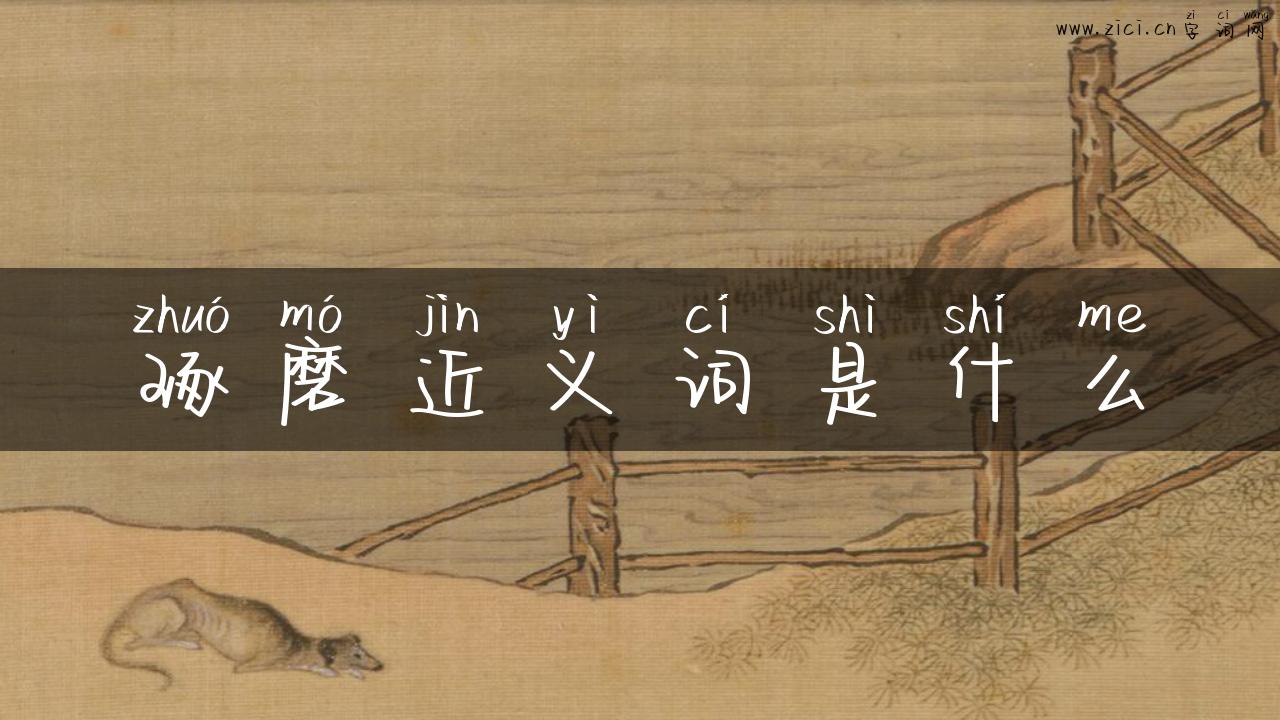 zi ci wang
www.zici.cn 字词网
zhuó mó jìn yì cí shì shí me
啄磨近义词是什么